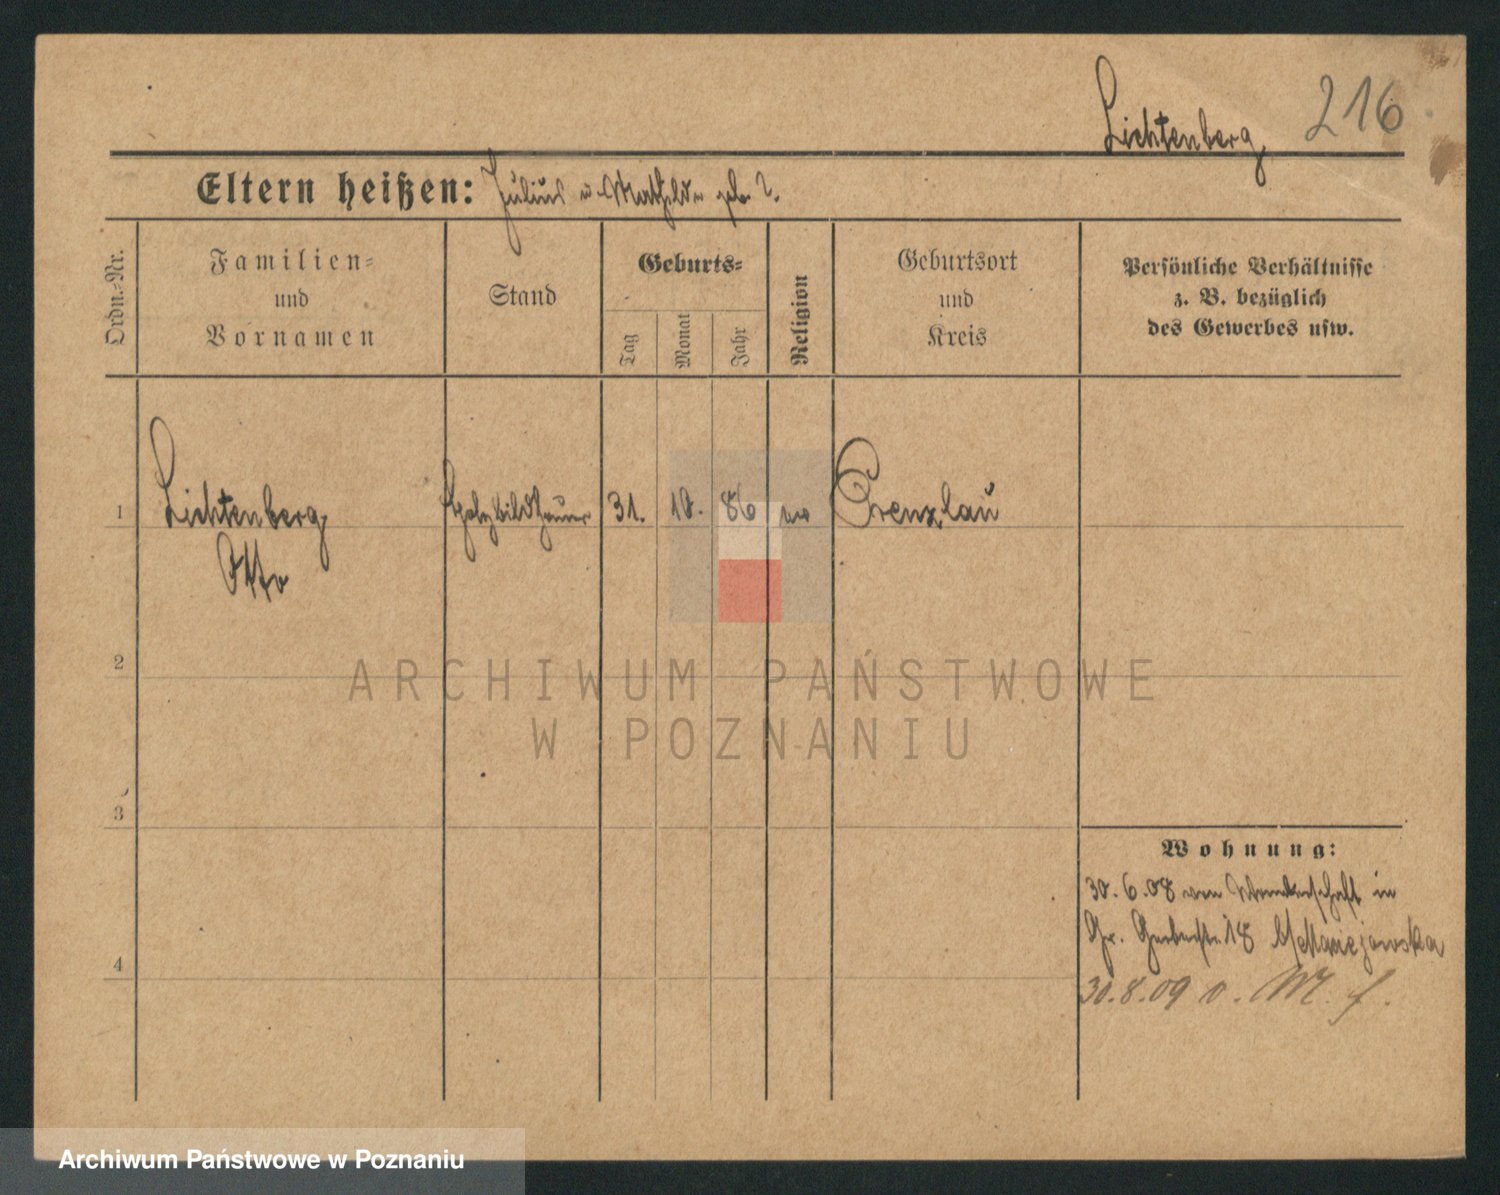 Lichtenberg
216
Eltern heißen: Julius u. Mathilde geb. ?.
Ordn.-Nr.
Familien-
und
Vornamen
Stand
Geburts-
Tag
Monat
Jahr
Religion
Geburtsort
und
Kreis
Persönliche Verhältnisse
z. B. bezüglich
des Gewerbes usw.
1
Lichtenberg
Otto
Holzbildhauer
31.
10.
86
Prenzlau
2
3
4
Wohnung:
30.6.08 von Wanderschaft in
Gr. Gerberstr. 18
30.8.09
ARCHIWUM PAŃSTWOWE
W POZNANIU
Archiwum Państwowe w Poznaniu